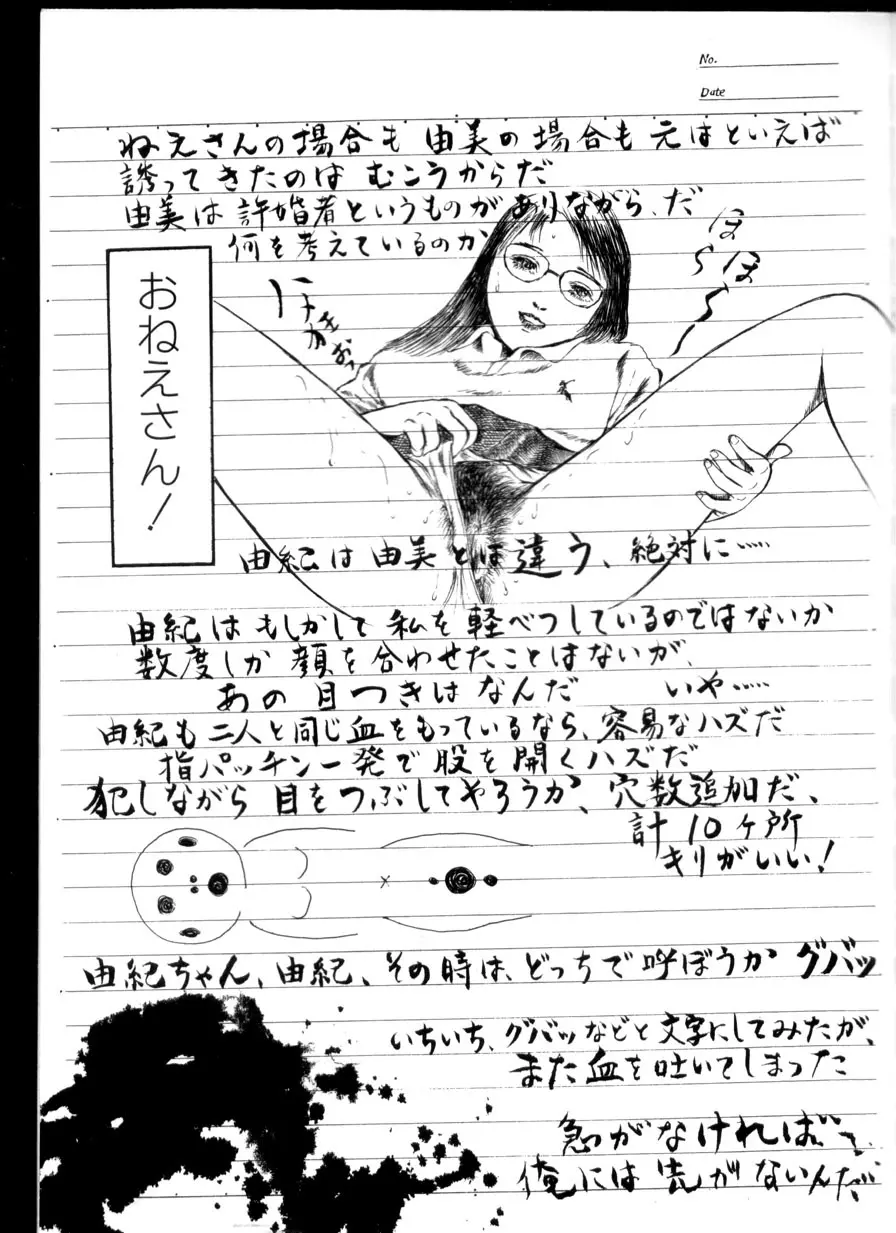 No.
Date
ねえさんの場合も 由美の場合も 元はといえば
誘ってきたのは むこうからだ
由美は許婚者というものがありながら、だ
何を考えているのか
おねえさん!
ほ〜ほ〜
由紀は由美とは違う、絶対に……
由紀はもしかして私を軽べつしているのではないか
数度しか顔を合わせたことはないが、
あの目つきはなんだ いや……
由紀も二人と同じ血をもっているなら、容易なハズだ
指パッチン一発で股を開くハズだ
犯しながら目をつぶしてやろうか、穴数追加だ、
計10ヶ所
キリがいい!
由紀ちゃん、由紀、その時は、どっちで呼ぼうか グバッ
いちいち、グバッなどと文字にしてみたが、
また血を吐いてしまった
急がなければ…
俺には先がないんだ…